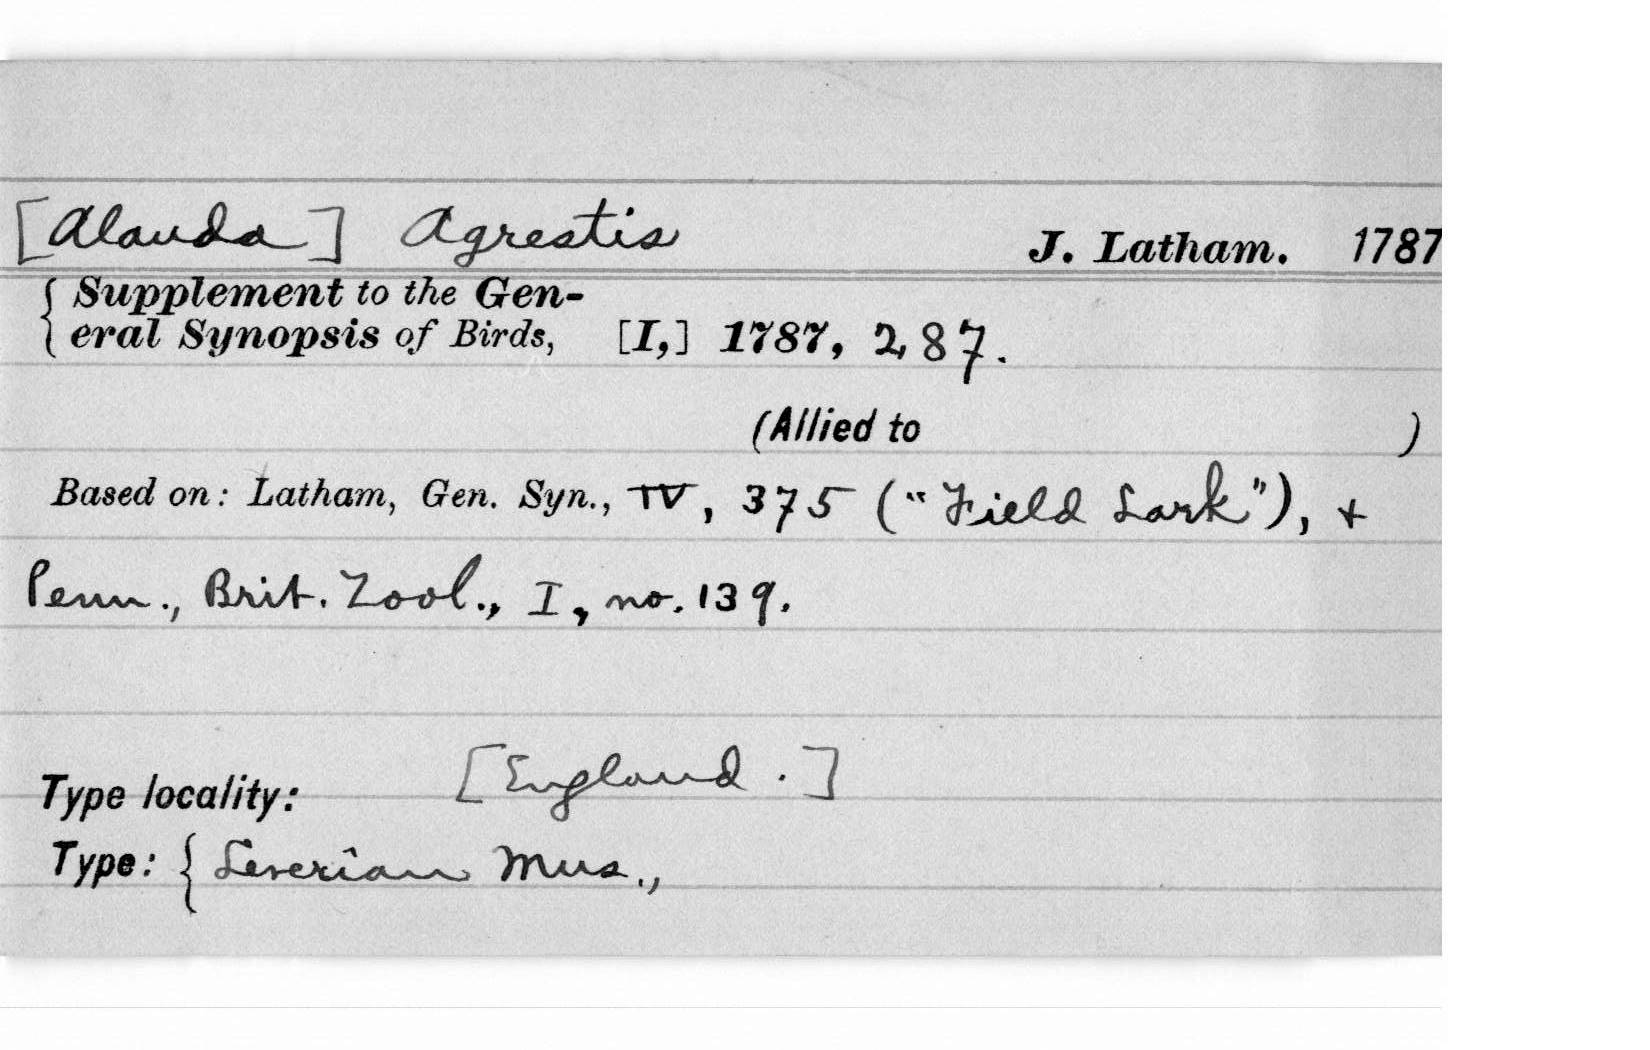 [Alauda] Agrestis J. Latham. 1787
Supplement to the Gen-
eral Synopsis of Birds, [I,] 1787, 287.
(Allied to )
Based on: Latham, Gen. Syn., IV, 375 ("Field Lark"), +
Penn., Brit. Zool., I, no. 139.
Type locality: [England.]
Type: { Leverian Mus.,